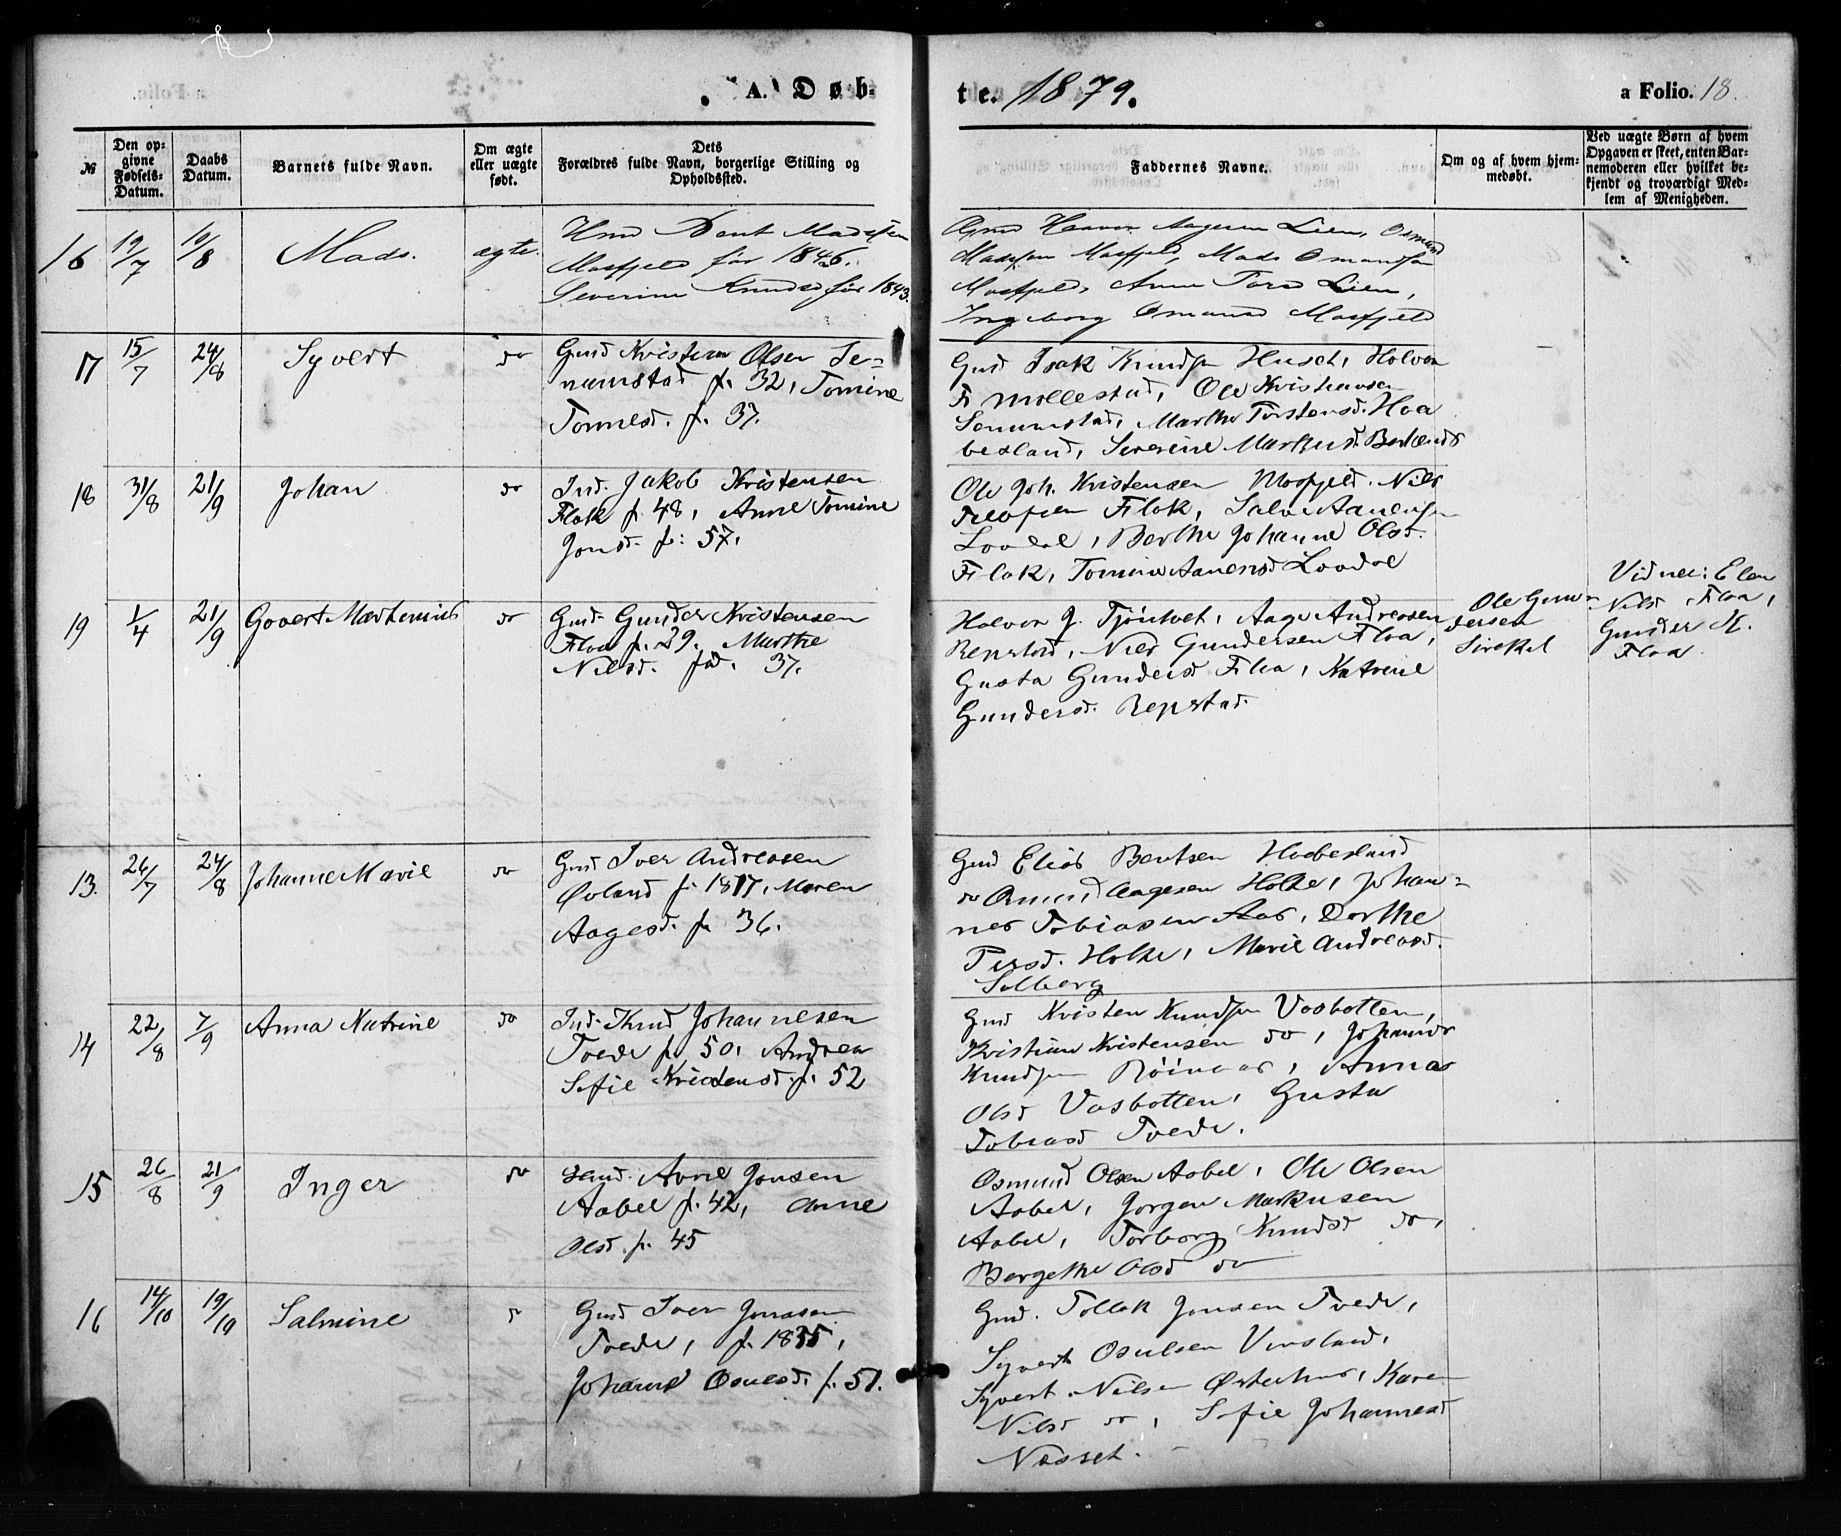 A. Døb-
te. 1879.
a Folio. 18.
№
Den op-
givne
Fødsels-
Datum.
Daabs
Datum.
Barnets fulde Navn.
Om ægte
eller uægte
født.
Dets
Forældres fulde Navn, borgerlige Stilling og
Opholdssted.
Faddernes Navne.
Om og af hvem hjem-
medøbt.
Ved uægte Børn af hvem
Opgaven er skeet, enten Bar-
nemoderen eller hvilket be-
kjendt og troværdigt Med-
lem af Menigheden.
16
19/7
10/8
Mads.
ægte.
Madssen
Mosfjeld før 1846.
Severine Knudsd før 1843.
Lien, Osmund
Madssen Mosfjeld, Mads Osmundsen
Mosfjeld, Anne Lien,
Ingeborg Osmund Mosfjeld
17
15/7
24/8
Syvert
do
Gmd Kristian Olsen Se-
numstad f. 32, Tomine
Tomesd. f. 37.
Gmd Isak Knudsen Huset, Holvor
F. Mollestad, Ole Kristiansen
Senumstad, Marthe Torstensd. Hoa
besland, Severine Markusd. Berland
18
31/8
21/9
Johan
do
Ind. Jakob Kristensen
Flak f. 48, Anne Tomine
Jonsd. f: 57.
Ole Joh. Kristensen Mosfjeld. Nils
Tellefsen Flak, Salve Aanensen
Lovdal, Berthe Johanne Olsd.
Flak, Tomine Aanensd Lovdal
19
1/4
21/9
Govert Marthinius
do
Gmd. Gunder Kristensen
Floa f. 29. Marthe
Nilsd. fød. 37.
Holvor G. Tjöntvet, Aage Andreasen
Repstad, Nils Gundersen Floa,
Gusta Gundersd Floa, Katrine
Gundersd. Repstad
Ole Gun-
dersen
Sirekil
Vidne: Elen
Nilsd. Floa,
Gunder K.
Floa.
13.
26/7
24/8
Johanne Marie
do
Gmd Iver Andreasen
Øvland f. 1817, Maren
Aagesd. f. 36.
Gmd Elias Bentsen Hoabesland
do Osmund Aagesen Holte, Johan-
nes Tobiasen Aas, Dorthe
Persd. Holte, Marie Andreasd.
Solberg
14
22/8
7/9
Anna Katrine
do
Ind. Knud Johannesen
Tvede f. 50, Andrea
Sofie Kristensd. f. 52
Gmd Kristen Knudsen Vasbotten,
Kristian Kristensen do, Johannes
Knudsen Röinaas, Anna
Olsd Vasbotten, Gusta
Tobiasd Tvede.
15
26/8
21/9
Inger
do
Arne Jonsen
Aabel f. 42, Anne
Olsd. f. 45
Osmund Olsen Aabel, Ole Olsen
Aabel, Jorgen Markusen
Aabel, Torborg Knudsd do,
Bergethe Olsd do
16
14/10
19/10
Salmine
do
Gmd Iver Jonasen
Tvede, f. 1835,
Johanne Osulsd. f. 51.
Gmd. Tollak Jonsen Tvede,
Syvert Osulsen Vinsland,
Syvert Nilsen Østerhus, Karen
Nilsd do, Sofie Johannesd
Næsset.